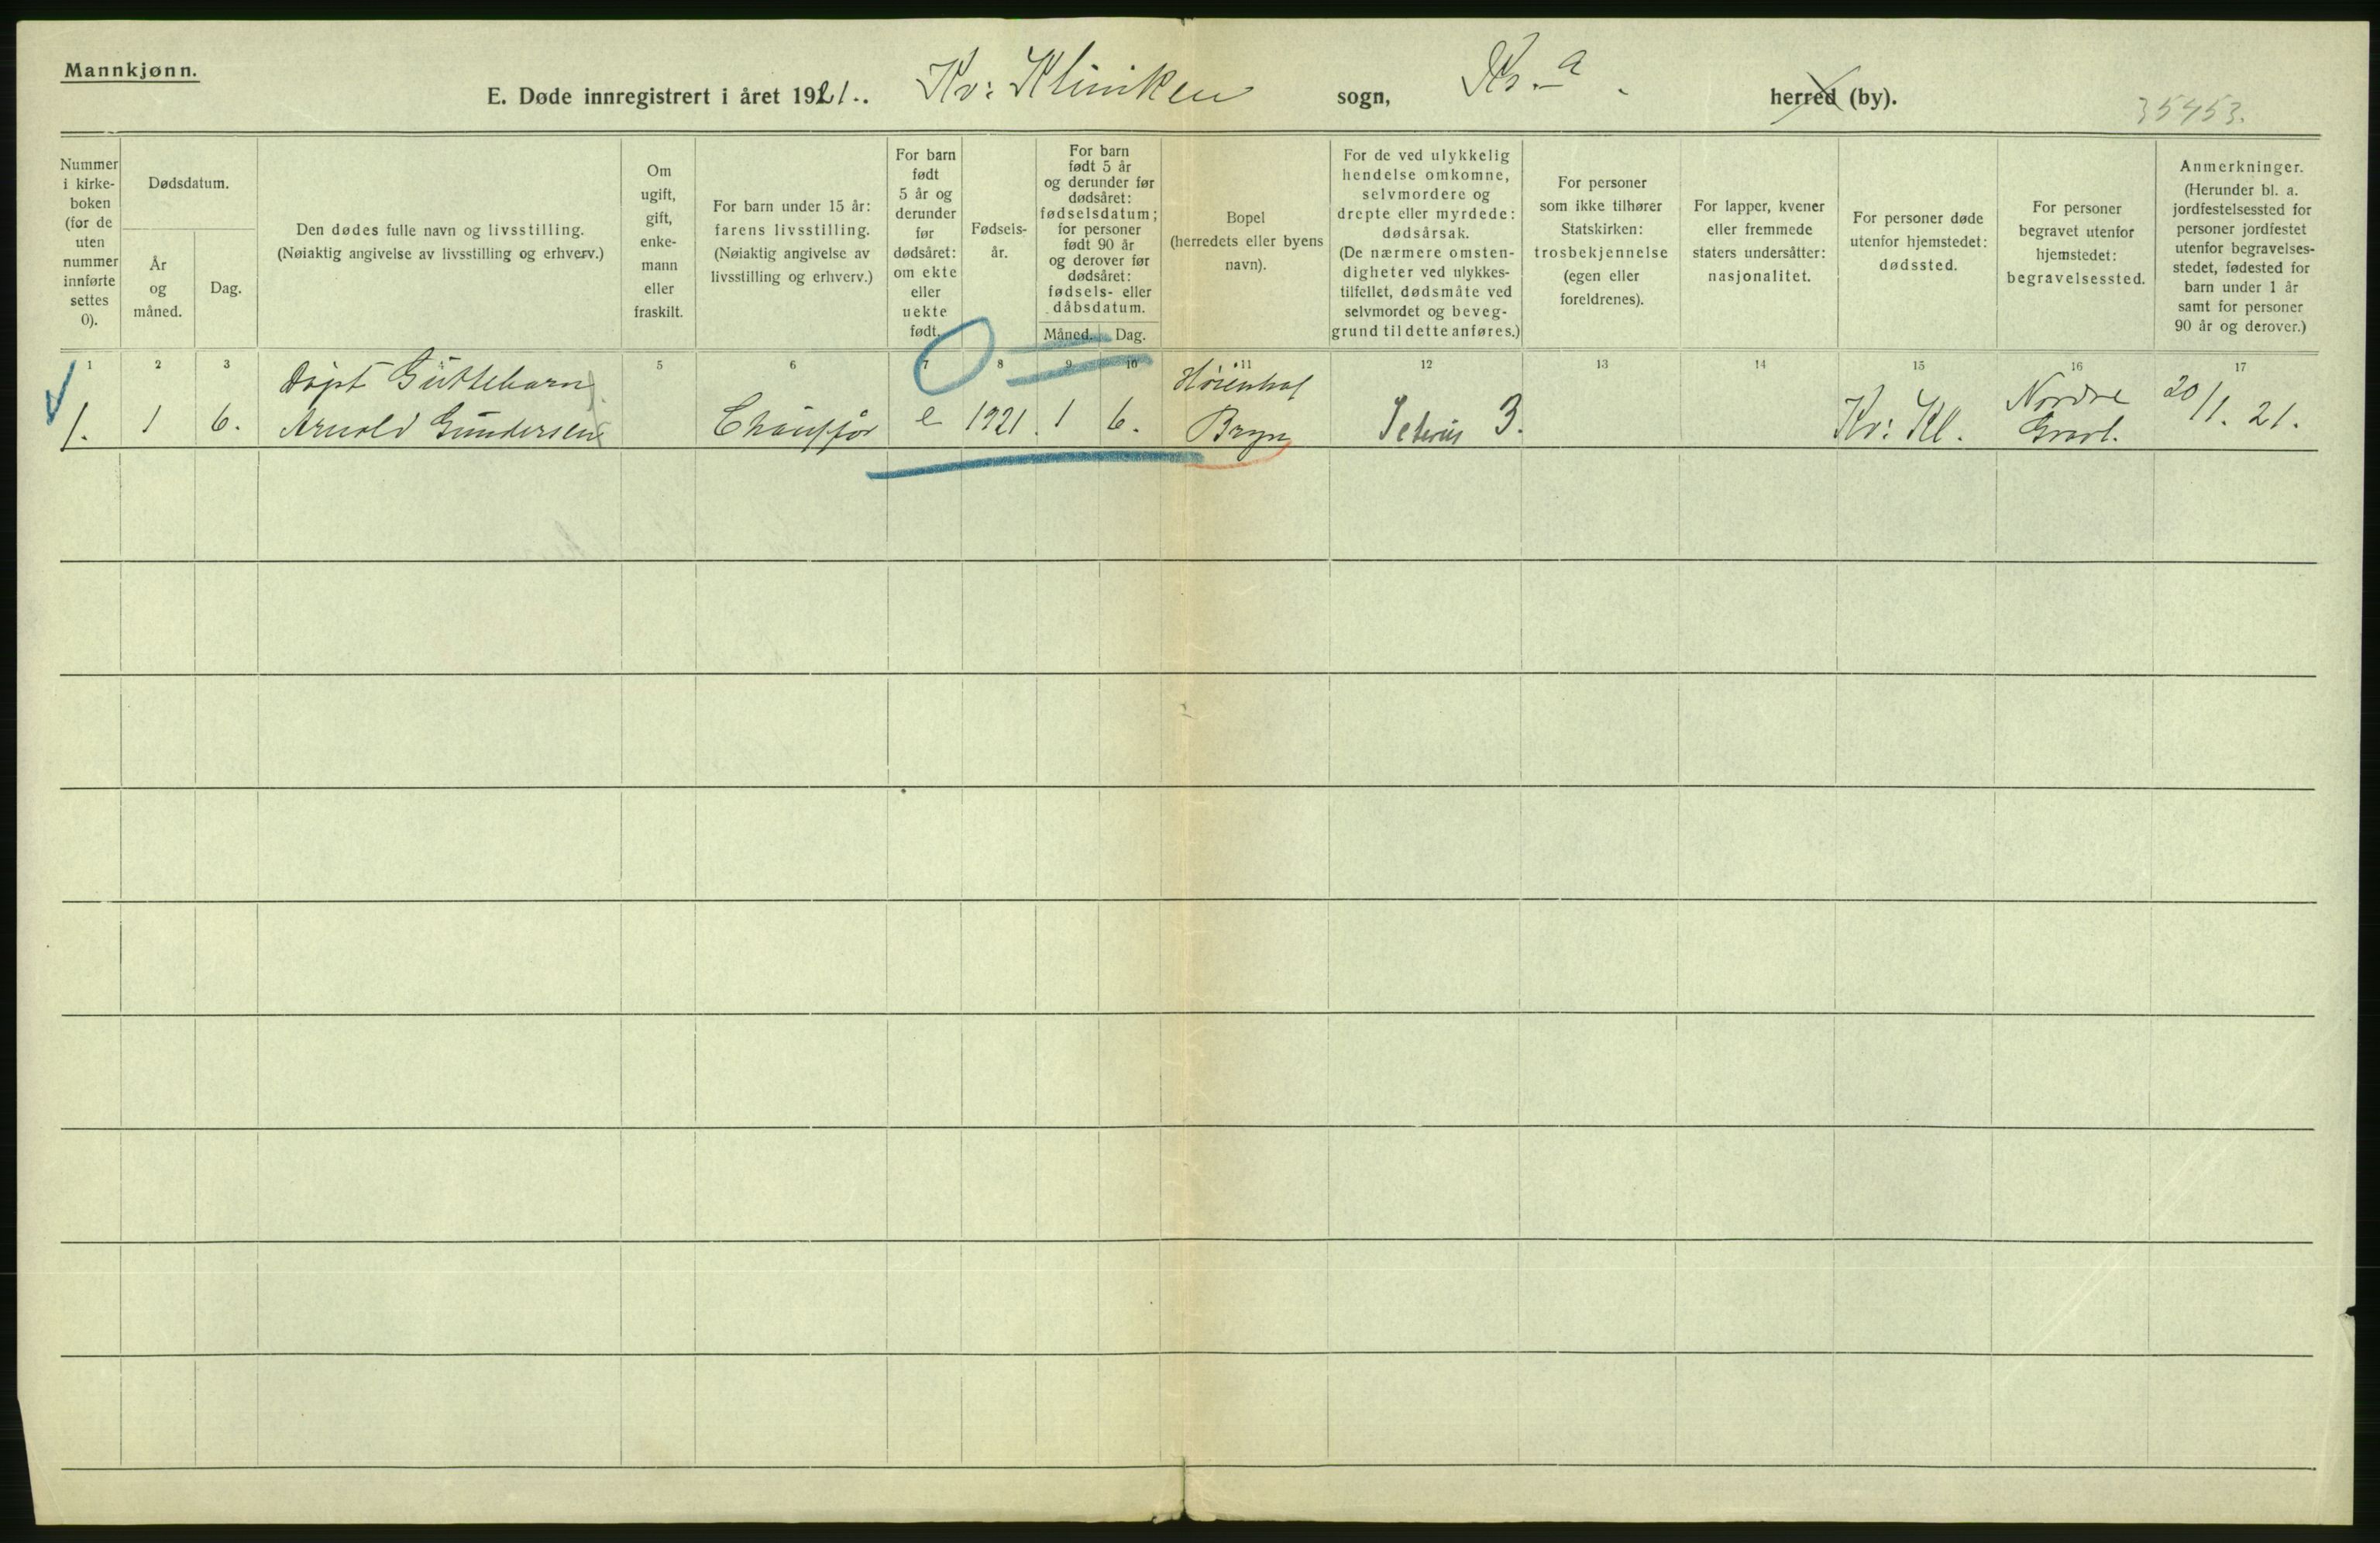 Mannkjønn.
E. Døde innregistrert i året 1921.. Kv: Kliniken sogn, Kr.a. herred (by).
35453.
Nummer i kirke- boken (for de uten nummer innførte settes 0).
Dødsdatum.
År og måned.
Dag.
Den dødes fulle navn og livsstilling.
(Nøiaktig angivelse av livsstilling og erhverv.)
Om ugift, gift, enke- mann eller fraskilt.
For barn under 15 år: farens livsstilling.
(Nøiaktig angivelse av livsstilling og erhverv.)
For barn født 5 år og derunder før dødsåret: om ekte eller uekte født.
Fødsels- år.
For barn født 5 år og derunder før dødsåret: fødselsdatum; for personer født 90 år og derover før dødsåret: fødsels- eller dåbsdatum.
Måned. Dag.
Bopel (herredets eller byens navn).
For de ved ulykkelig hendelse omkomne, selvmordere og drepte eller myrdede: dødsårsak.
(De nærmere omsten- digheter ved ulykkes- tilfellet, dødsmåte ved selvmordet og beveg- grund til dette anføres.)
For personer som ikke tilhører Statskirken: trosbekjennelse (egen eller foreldrenes).
For lapper, kvener eller fremmede staters undersåtter: nasjonalitet.
For personer døde utenfor hjemstedet: dødssted.
For personer begravet utenfor hjemstedet: begravelsessted.
Anmerkninger.
(Herunder bl. a. jordfestelsessted for personer jordfestet utenfor begravelses- stedet, fødested for barn under 1 år samt for personer 90 år og derover.)
1 2 3 5 6 7 8 9 10 11 12 13 14 15 16 17
Døpt Guttebarn
1. 1 6. Arnold Gundersen Chauffør e 1921. 1 6. Bryn 3. Kv: Kl. Nordre Gravl. 20/1. 21.